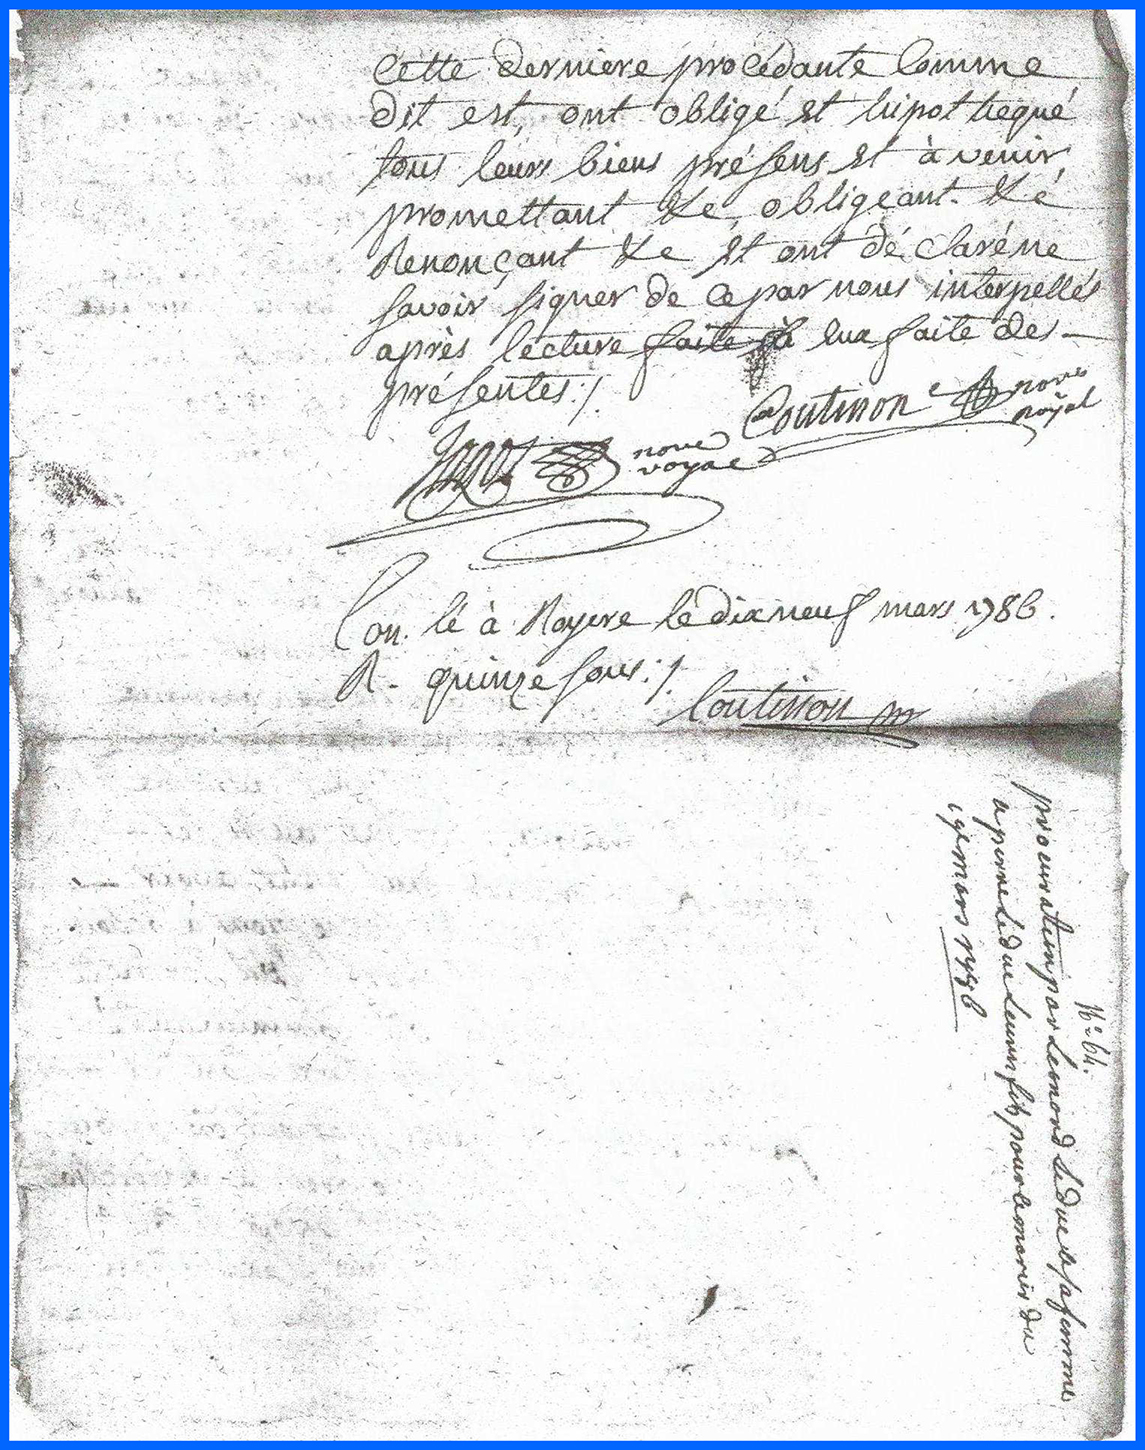 Cette derniere procédante Comme
dit est, ont obligé et hipothequé
tous leurs biens présens et à venir
promettant &e, obligeant. &é
Renonçant &e Et ont déclaré ne
savoir signer de ce par nous interpellés
après lecture faite à eux faite des
présentes ./.
Coutinon nore
royal
nore
royal
Con. lé à Royere le dix neuf mars 1786.
R. quinze sous ./.
Coutinon
No 64.
procuration par Leonard Ledue et sa femme
a pierre Ledue leur fils pour le marier du
19e mars 1786